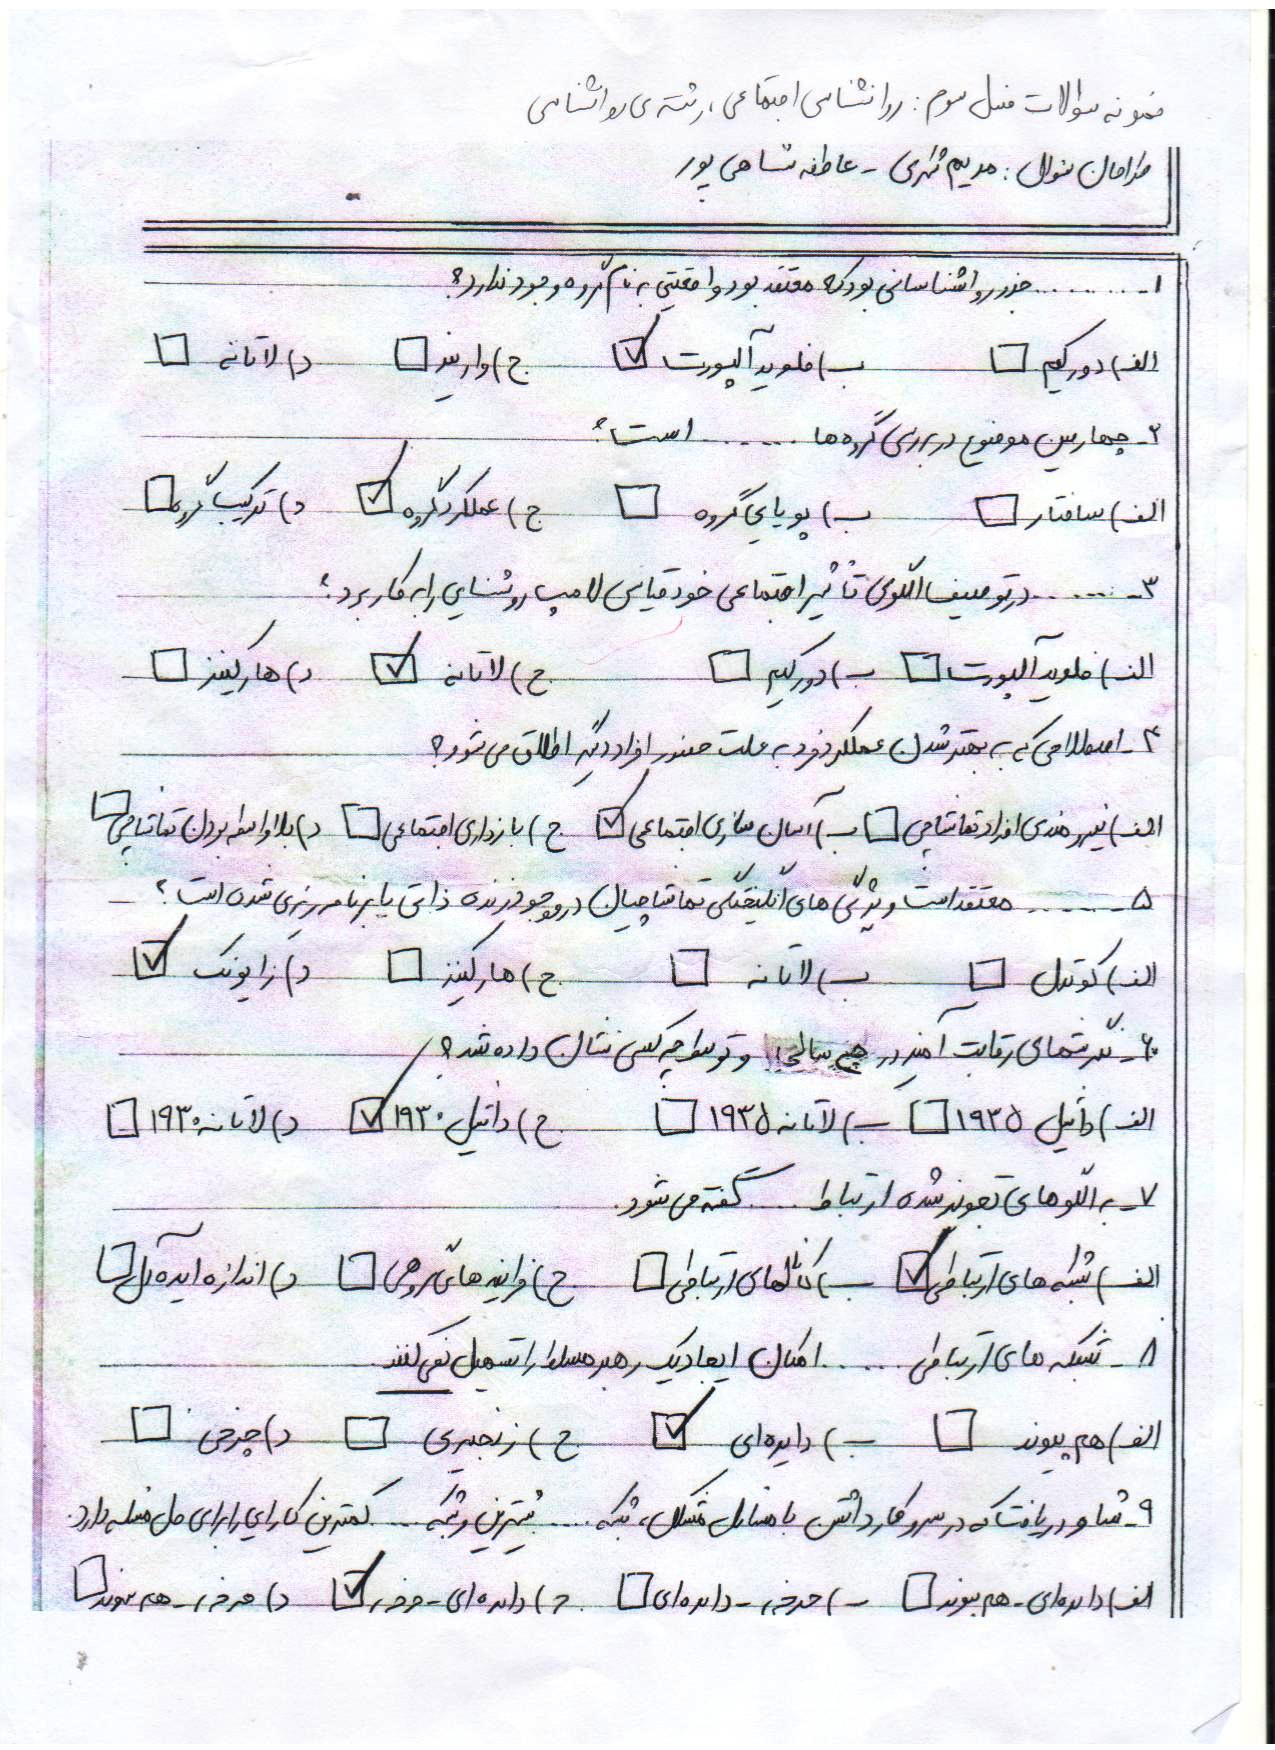 نمونه سوالات فصل سوم: روانشناسی اجتماعی، رشته ی روانشناسی
طراحان سوال: مریم شهری - عاطفه شاهی پور
۱- .......... جزء روانشناسانی بود که معتقد بود واقعیتی به نام گروه وجود ندارد؟
الف) دورکیم ب) فلوید آلپورت ج) وارینر د) لاتانه
۲- چهارمین موضوع در بررسی گروه ها ...... است؟
الف) ساختار ب) پویایی گروه ج) عملکرد گروه د) ترکیب گروه
۳- ...... در توصیف الگوی تأثیر اجتماعی خود قیاس لامپ روشنایی را به کار برد؟
الف) فلوید آلپورت ب) دورکیم ج) لاتانه د) هارکینز
۴- اصطلاحی که به بهتر شدن عملکرد فرد به علت حضور افراد دیگر اطلاق می شود؟
الف) نیرومندی افراد تماشاچی ب) آسان سازی اجتماعی ج) بازداری اجتماعی د) بلاواسطه بودن تماشاچی
۵- ....... معتقد است ویژگی های انگیختگی تماشاچیان در موجود زنده ذاتی یا برنامه ریزی شده است؟
الف) کوترل ب) لاتانه ج) هارکینز د) زایونک
۶- نگرشهای رقابت آمیز در چه سالی و توسط چه کسی نشان داده شد؟
الف) داشیل ۱۹۳۵ ب) لاتانه ۱۹۳۵ ج) داشیل ۱۹۳۰ د) لاتانه ۱۹۳۰
۷- به الگوهای تعیین شده ارتباط ..... گفته می شود.
الف) شبکه های ارتباطی ب) کانالهای ارتباطی ج) فرایندهای گروهی د) اندازه ایده آل
۸- شبکه های ارتباطی ...... امکان ایجاد یک رهبر مسلط را تسهیل نمی کنند.
الف) هم پیوند ب) دایره ای ج) زنجیری د) چرخی
۹- شاو دریافت که در سروکار داشتن با مسائل مشکل، شبکه .... بیشترین و شبکه .... کمترین کارایی را برای حل مسئله دارد.
الف) دایره ای - هم پیوند ب) چرخی - دایره ای ج) دایره ای - چرخی د) چرخی - هم پیوند